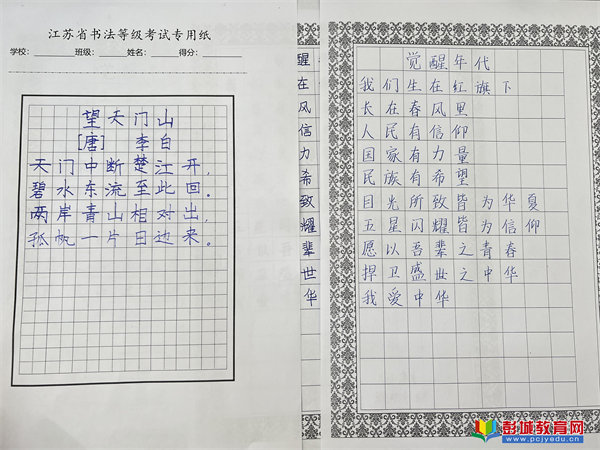 江苏省书法等级考试专用纸
学校：
班级：
姓名：
得分：
望天门山
[唐] 李白
天门中断楚江开，
碧水东流至此回。
两岸青山相对出，
孤帆一片日边来。
醒
在
风
信
力
希
致
耀
辈
世
华
觉醒年代
我们生在红旗下
长在春风里
人民有信仰
国家有力量
民族有希望
目光所致皆为华夏
五星闪耀皆为信仰
愿以吾辈之青春
捍卫盛世之中华
我爱中华
彭城教育网
www.pcjyedu.cn